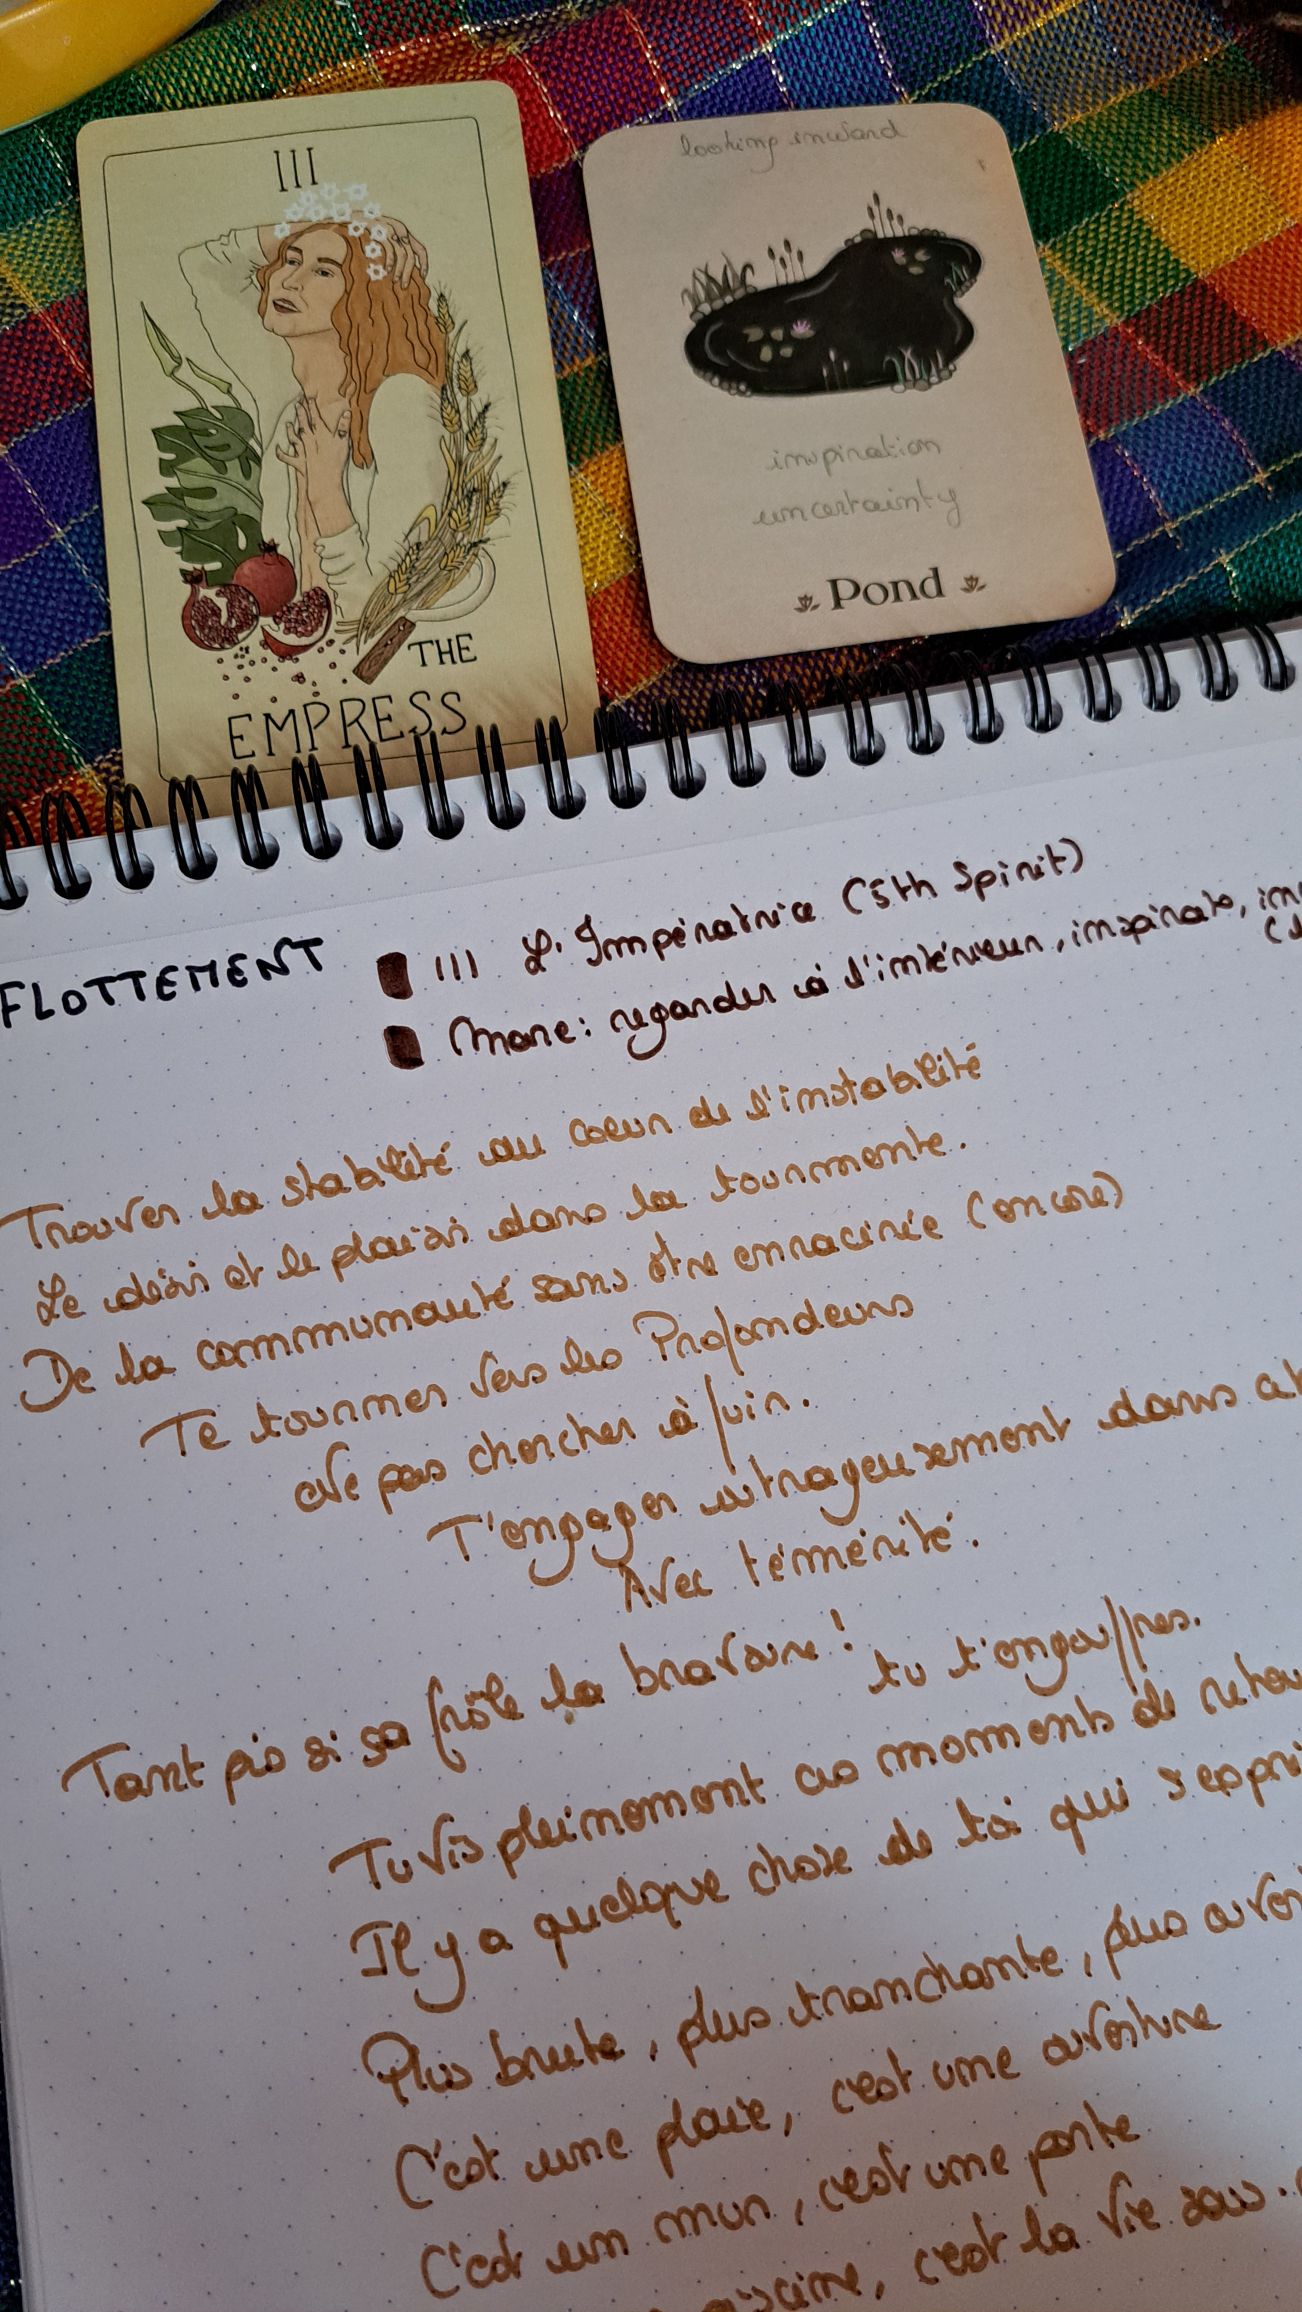 III
THE
EMPRESS
looking inward
inspiration
uncertainty
Pond
FLOTTEMENT
III L'Impératrice (5th Spirit)
Mare: regarder à l'intérieur, inspirato,
Trouver la stabilité au coeur de l'instabilité
Le désir et le plaisir dans la tourmente.
De la communauté sans être enracinée (encore)
Te tourner vers les Profondeurs
Ne pas chercher à fuir.
T'engager outrageusement dans
Avec témérité.
Tant pis si sa frôle la bravoure!
tu t'engouffres.
Tu vis pleinement ces moments de
Il y a quelque chose de toi qui
Plus brute, plus tranchante, plus
C'est une plaie, c'est une ouverture
C'est un mur, c'est une porte
c'est la vie sous